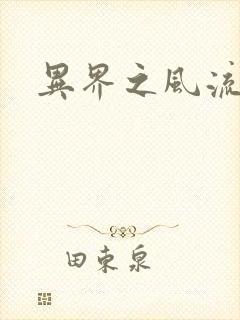 異界之風流
田東泉